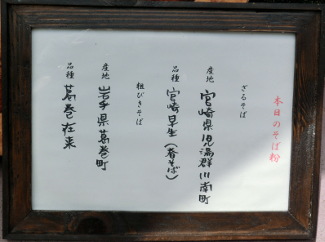 本日のそば粉
ざるそば
産地 宮崎県児湯群川南町
品種 宮崎早生(春そば)
粗びきそば
産地 岩手県葛巻町
品種 葛巻在来